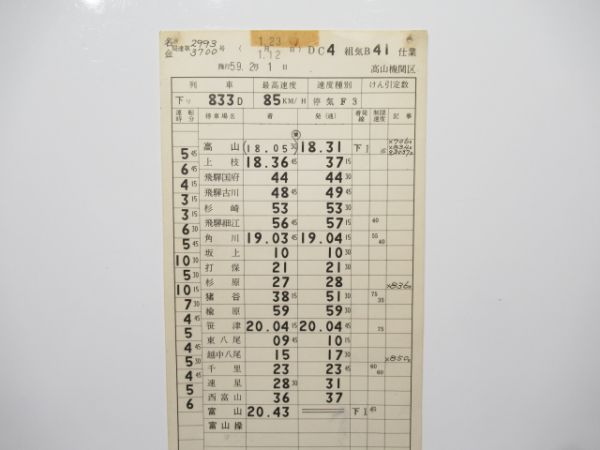 名古 局達第 2993 号
金 3700
( 1.23 )
1.12
月 日
DC4 組気B41 仕業
施行59.2月1日 高山機関区
列車 最高速度 速度種別 けん引定数
下り 833D 85KM/H 停気F3
運転時分 停車場名 着 発(通) 着発線 制限速度 記事
高山 (18.05 30) 18.31 下1
5 45 上枝 18.36 45 37 15
6 45 飛騨国府 44 44 30
4 15 飛騨古川 48 45 49 45
3 15 杉崎 53 53 30
3 15 飛騨細江 56 45 57 15 40
6 30 角川 19.03 45 19.04 15 55 40
5 45 坂上 10 10 30
10 30 打保 21 21 30
5 30 杉原 27 28 ×836D
10 15 猪谷 38 15 51 30 75 35
7 30 楡原 59 59 30
4 45 笹津 20.04 15 20.04 45 75
4 45 東八尾 09 45 10 15
5 越中八尾 15 17 30 ×850D
5 45 千里 23 23 45 60 60
4 45 速星 28 30 31
5 西富山 36 37
6 富山 20.43 下1 45
富山操